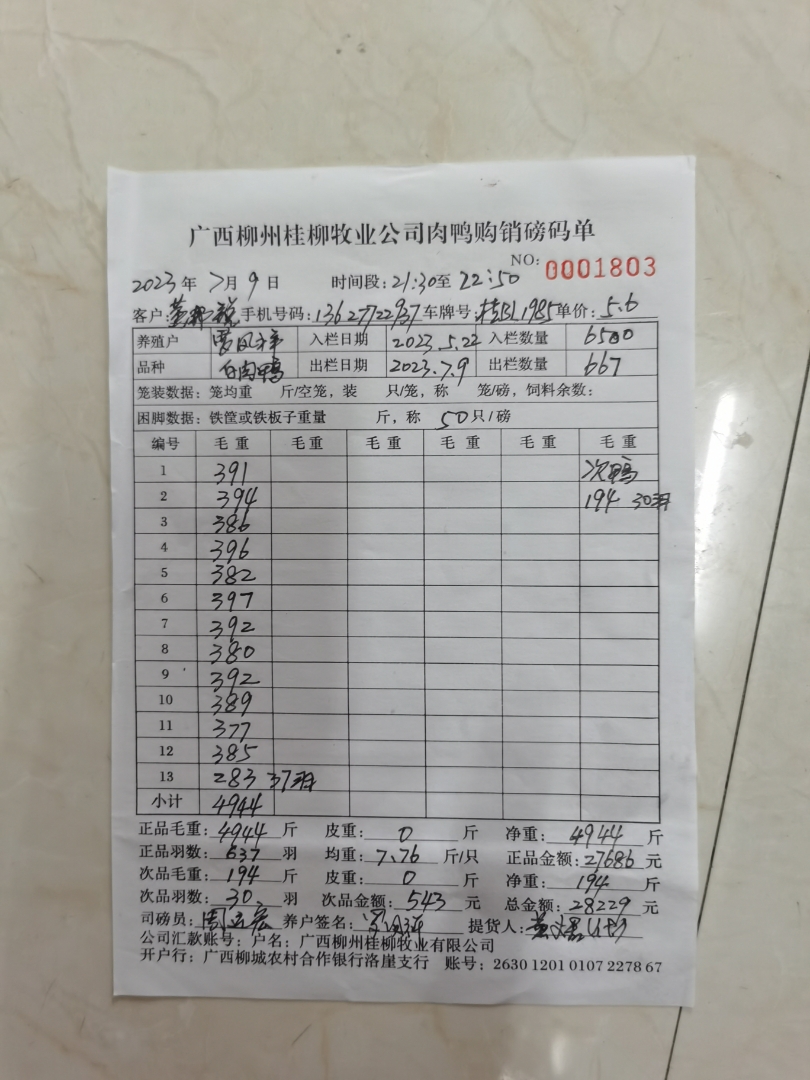 广西柳州桂柳牧业公司肉鸭购销磅码单
NO: 0001803
2023年 7月 9日 时间段: 21:30至 22:50
客户: 手机号码: 13627722937 车牌号: 1985 单价: 5.6
养殖户 入栏日期 2023.5.22 入栏数量 6500
品种 白肉鸭 出栏日期 2023.7.9 出栏数量 667
笼装数据: 笼均重 斤/空笼, 装 只/笼, 称 笼/磅, 饲料余数:
困脚数据: 铁筐或铁板子重量 斤, 称 50只/磅
编号 毛重 毛重 毛重 毛重 毛重 毛重
1 391 次鸭
2 394 194 30羽
3 386
4 396
5 382
6 397
7 392
8 380
9 392
10 389
11 377
12 385
13 283 37羽
小计 4944
正品毛重: 4944 斤 皮重: 0 斤 净重: 4944 斤
正品羽数: 637 羽 均重: 7.76 斤/只 正品金额: 27686 元
次品毛重: 194 斤 皮重: 0 斤 净重: 194 斤
次品羽数: 30 羽 次品金额: 543 元 总金额: 28229 元
司磅员: 养户签名: 提货人:
公司汇款账号: 户名: 广西柳州桂柳牧业有限公司
开户行: 广西柳城农村合作银行洛崖支行 账号: 2630 1201 0107 2278 67